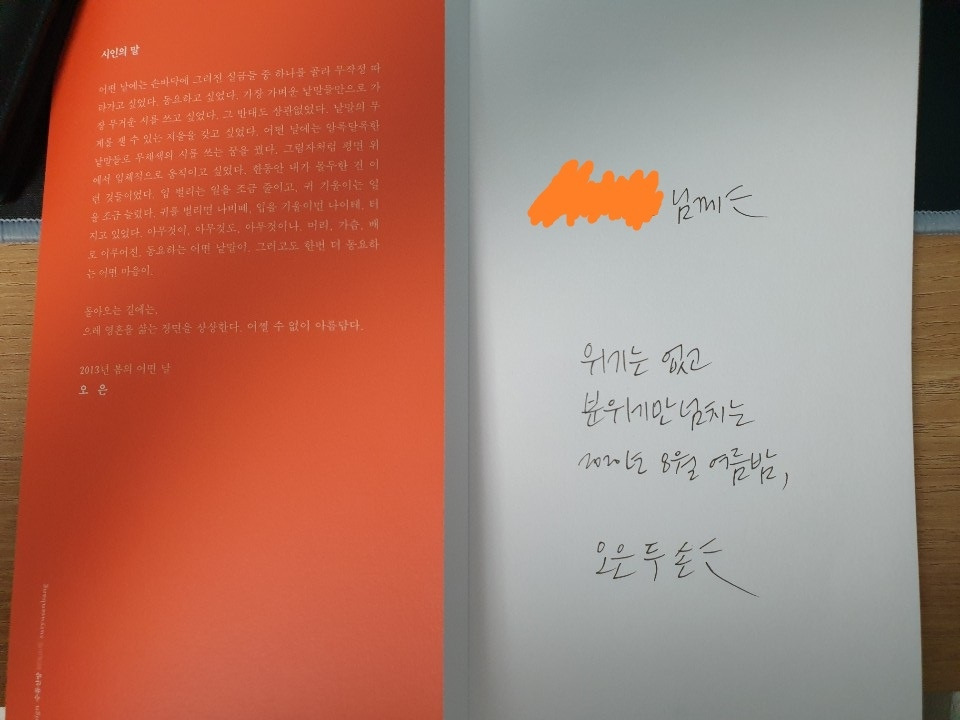 시인의 말
어떤 날에는 손바닥에 그려진 실금들 중 하나를 골라 무작정 따
라가고 싶었다. 동요하고 싶었다. 가장 가벼운 낱말들만으로 가
장 무거운 시를 쓰고 싶었다. 그 반대도 상관없었다. 낱말의 무
게를 잴 수 있는 저울을 갖고 싶었다. 어떤 날에는 알록달록한
낱말들로 무채색의 시를 쓰는 꿈을 꿨다. 그림자처럼 평면 위
에서 입체적으로 움직이고 싶었다. 한동안 내가 몰두한 건 이
런 것들이었다. 입 벌리는 일을 조금 줄이고, 귀 기울이는 일
을 조금 늘렸다. 귀를 벌리면 나비떼, 입을 기울이면 나이테, 터
지고 있었다. 아무것이, 아무것도, 아무것이나. 머리, 가슴, 배
로 이루어진, 동요하는 어떤 낱말이. 그러고도 한번 더 동요하
는 어떤 마음이.
돌아오는 길에는,
으레 영혼을 삶는 장면을 상상한다. 어쩔 수 없이 아름답다.
2013년 봄의 어떤 날
오 은
님께
위기는 없고
분위기만 넘치는
2020년 8월 여름밤,
오은 두 손